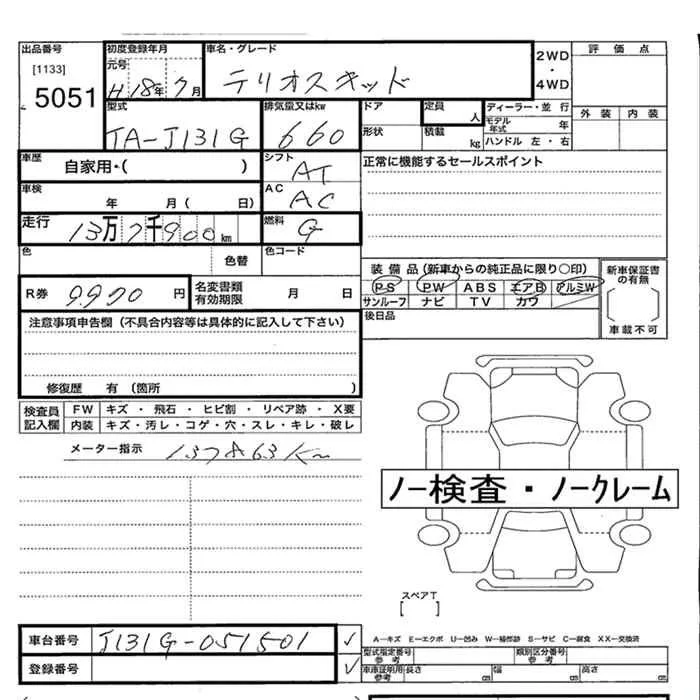 出品番号 初度登録年月 車名・グレード 評価点
[1133] 元号 2WD・4WD
5051 H 18年 7月 テリオスキッド
外装 内装
型式 排気量又はkw ドア 定員 人 ディーラー・並行
TA-J131G 660 形状 積載 kg モデル年式 年
ハンドル 左・右
車歴 自家用・( ) シフト AT 正常に機能するセールスポイント
車検 年 月( 日) AC AC
走行 13万7千900km 燃料 G
色 色替 色コード
装備品(新車からの純正品に限り○印) 新車保証書の有無
PS PW ABS エアB アルミW
サンルーフ ナビ TV カワ
R券 9,970円 名変書類有効期限 月 日 後日品 車載不可
注意事項申告欄(不具合内容等は具体的に記入して下さい)
修復歴 有(箇所 )
検査員記入欄 FW キズ・飛石・ヒビ割・リペア跡・X要
内装 キズ・汚レ・コゲ・穴・スレ・キレ・破レ
メーター指示 137863Km
ノー検査・ノークレーム
スペアT
[ ]
車台番号 J131G-051501 ✓
A-キズ E-エクボ U-凹み W-補修跡 S-サビ C-腐食 XX-交換済
登録番号 ✓
型式指定番号 参考 類別区分番号 参考
車庫証明用 参考 長さ cm 幅 cm 高さ cm